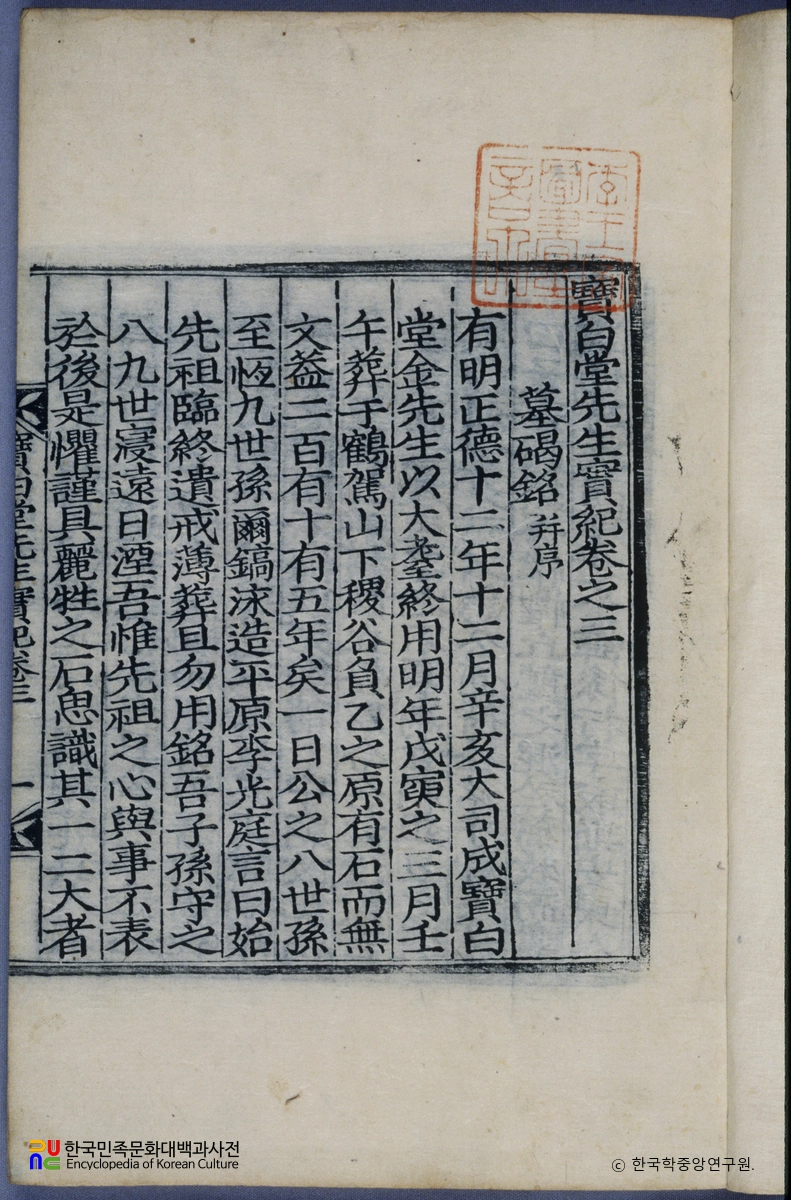 寶白堂先生實紀卷之三
墓碣銘 幷序
有明正德十二年十二月辛亥大司成寶白
堂金先生以大耋終用明年戊寅之三月壬
午葬于鶴駕山下稷谷負乙之原有石而無
文葢三百有十有五年矣一日公之八世孫
至恆九世孫爾鎬泳造平原李光庭言曰始
先祖臨終遺戒薄葬且勿用銘吾子孫守之
八九世寖遠日湮吾惟先祖之心與事不表
於後是懼謹具麗牲之石思識其一二大者
寶白堂先生實紀卷三
一
한국민족문화대백과사전
Encyclopedia of Korean Culture
ⓒ 한국학중앙연구원.